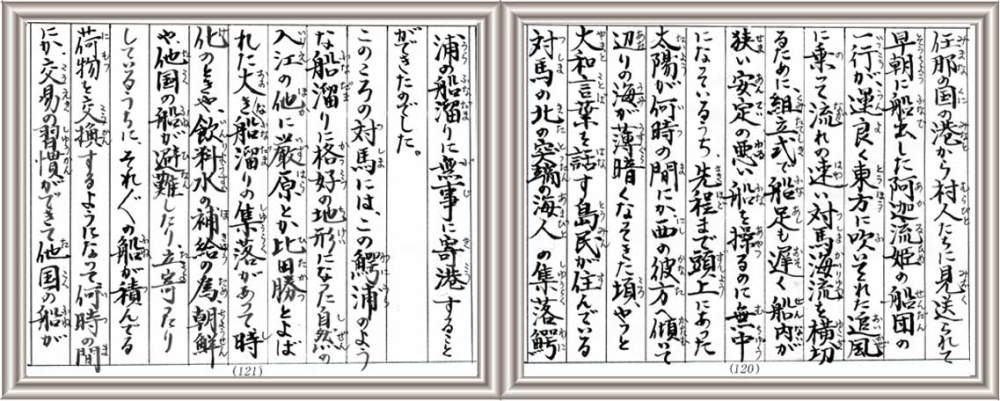 任那の国の港から村人たちに見送られて
早朝に船出した阿迦流姫の船団の
一行が運良く東方に吹いてくれた追風
に乗って流れの速い対馬海流を横切
るために、組立式船足も遅く船内が
狭い安定の悪い船を操るのに無中
になっているうち、先程まで頭上にあった
太陽が何時の間にか西の彼方へ傾いて
辺りの海が薄暗くなってきた頃、やっと
大和言葉を話す島民が住んでいる
対馬の北の突端の海人の集落鰐
(120)
浦の船溜りに無事に寄港すること
ができたのでした。
このころの対馬には、この鰐浦のよう
な船溜りに格好の地形になった自然の
入江の他に、厳原とか比田勝とよば
れた大きな船溜りの集落があって時
化のときや、飲料水の補給の為、朝鮮
や、他国の船が避難したり、立寄ったり
しているうちに、それぐの船が積んでる
荷物と交換するようになって何時の間
にか、交易の習慣ができて他国の船が
(121)